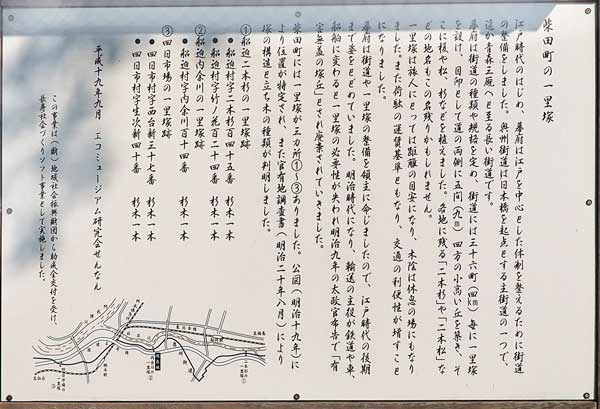 柴田町の一里塚
江戸時代のはじめ、幕府は江戸を中心とした体制を整えるために街道
の整備をしました。奥州街道は日本橋を起点とする主街道の一つで
遠か青森三厩へと至る長い街道です。
幕府は街道の種類や規格を定め、街道には三十六町(四㎞)毎に一里塚
を設け、目印として道の両側に五間(九m)四方の小高い丘を築き、そ
こに榎や松、杉などを植えました。各地に残る「二本杉」や「二本松」な
どの地名もこの名残りかもしれません。
一里塚は旅人にとっては距離の目安になり、木陰は休息の場にもなり
ました。また荷駄の運賃基準ともなり、交通の利便性が増すこと
になりました。
幕府は街道や一里塚の整備を領主に命じましたので、江戸時代の後期
まで姿をとどめていました。明治時代になり、輸送の主役が鉄道や車、
船舶に変わると一里塚の必要性が失われ明治九年の太政官布告で「有
害無益の塚丘」とされ廃棄されていきました。
柴田町には一里塚が三カ所①~③ありました。公図(明治十九年)に
より位置が特定され、また官有地調査書(明治二十年八月)により
塚の構造と立ち木の種類が判明しました。
①船迫二本杉の一里塚跡
●船迫村字二本杉百四十五番 杉木一本
●船迫村字竹ノ花百二十四番 杉木一本
②船迫内余川の一里塚跡
●船迫村字内余川百十四番 杉木一本
③四日市場の一里塚跡
●四日市村字西台新三十七番 杉木一本
●四日市村字生次新四十番 杉木一本
平成十九年九月 エコミュージアム研究会せんなん
この事業は(財)地域社会振興財団から助成金交付を受け、
長寿社会づくりソフト事業として実施しました。